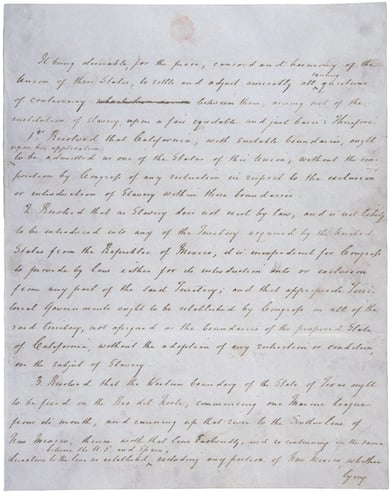 It being desirable, for the peace, concord and harmony of the
Union of these States, to settle and adjust amicably all existing questions
of controversy between them, arising out of the
institution of Slavery, upon a fair equitable and just basis: Therefore
1st Resolved that California, with suitable boundaries, ought
upon her application
to be admitted as one of the States of this Union, without the im-
position by Congress of any restriction in respect to the exclusion
or introduction of Slavery within those boundaries.
2. Resolved that as Slavery does not exist by law, and is not likely
to be introduced into any of the Territory acquired by the United
States from the Republic of Mexico, it is inexpedient for Congress
to provide by law either for its introduction into or exclusion
from any part of the said Territory; and that appropriate Terri-
torial Governments ought to be established by Congress in all of the
said territory, not assigned as the boundaries of the proposed State
of California, without the adoption of any restriction or condition
on the subject of Slavery.
3. Resolved that the Western boundary of the State of Texas ought
to be fixed on the Rio del Norte, commencing one Marine league
from its mouth, and running up that river to the Southern line of
New Mexico, thence with that line Eastwardly, and so continuing in the same
between the U.S. and Spain,
direction to the line as established, excluding any portion of New Mexico, whether
lying